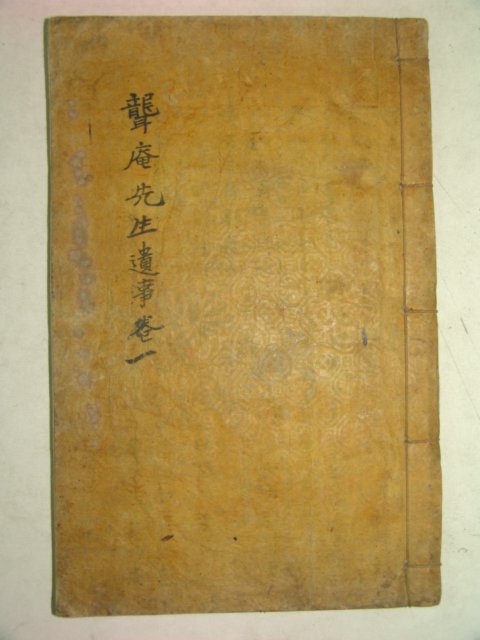 聾庵先生遺事卷一